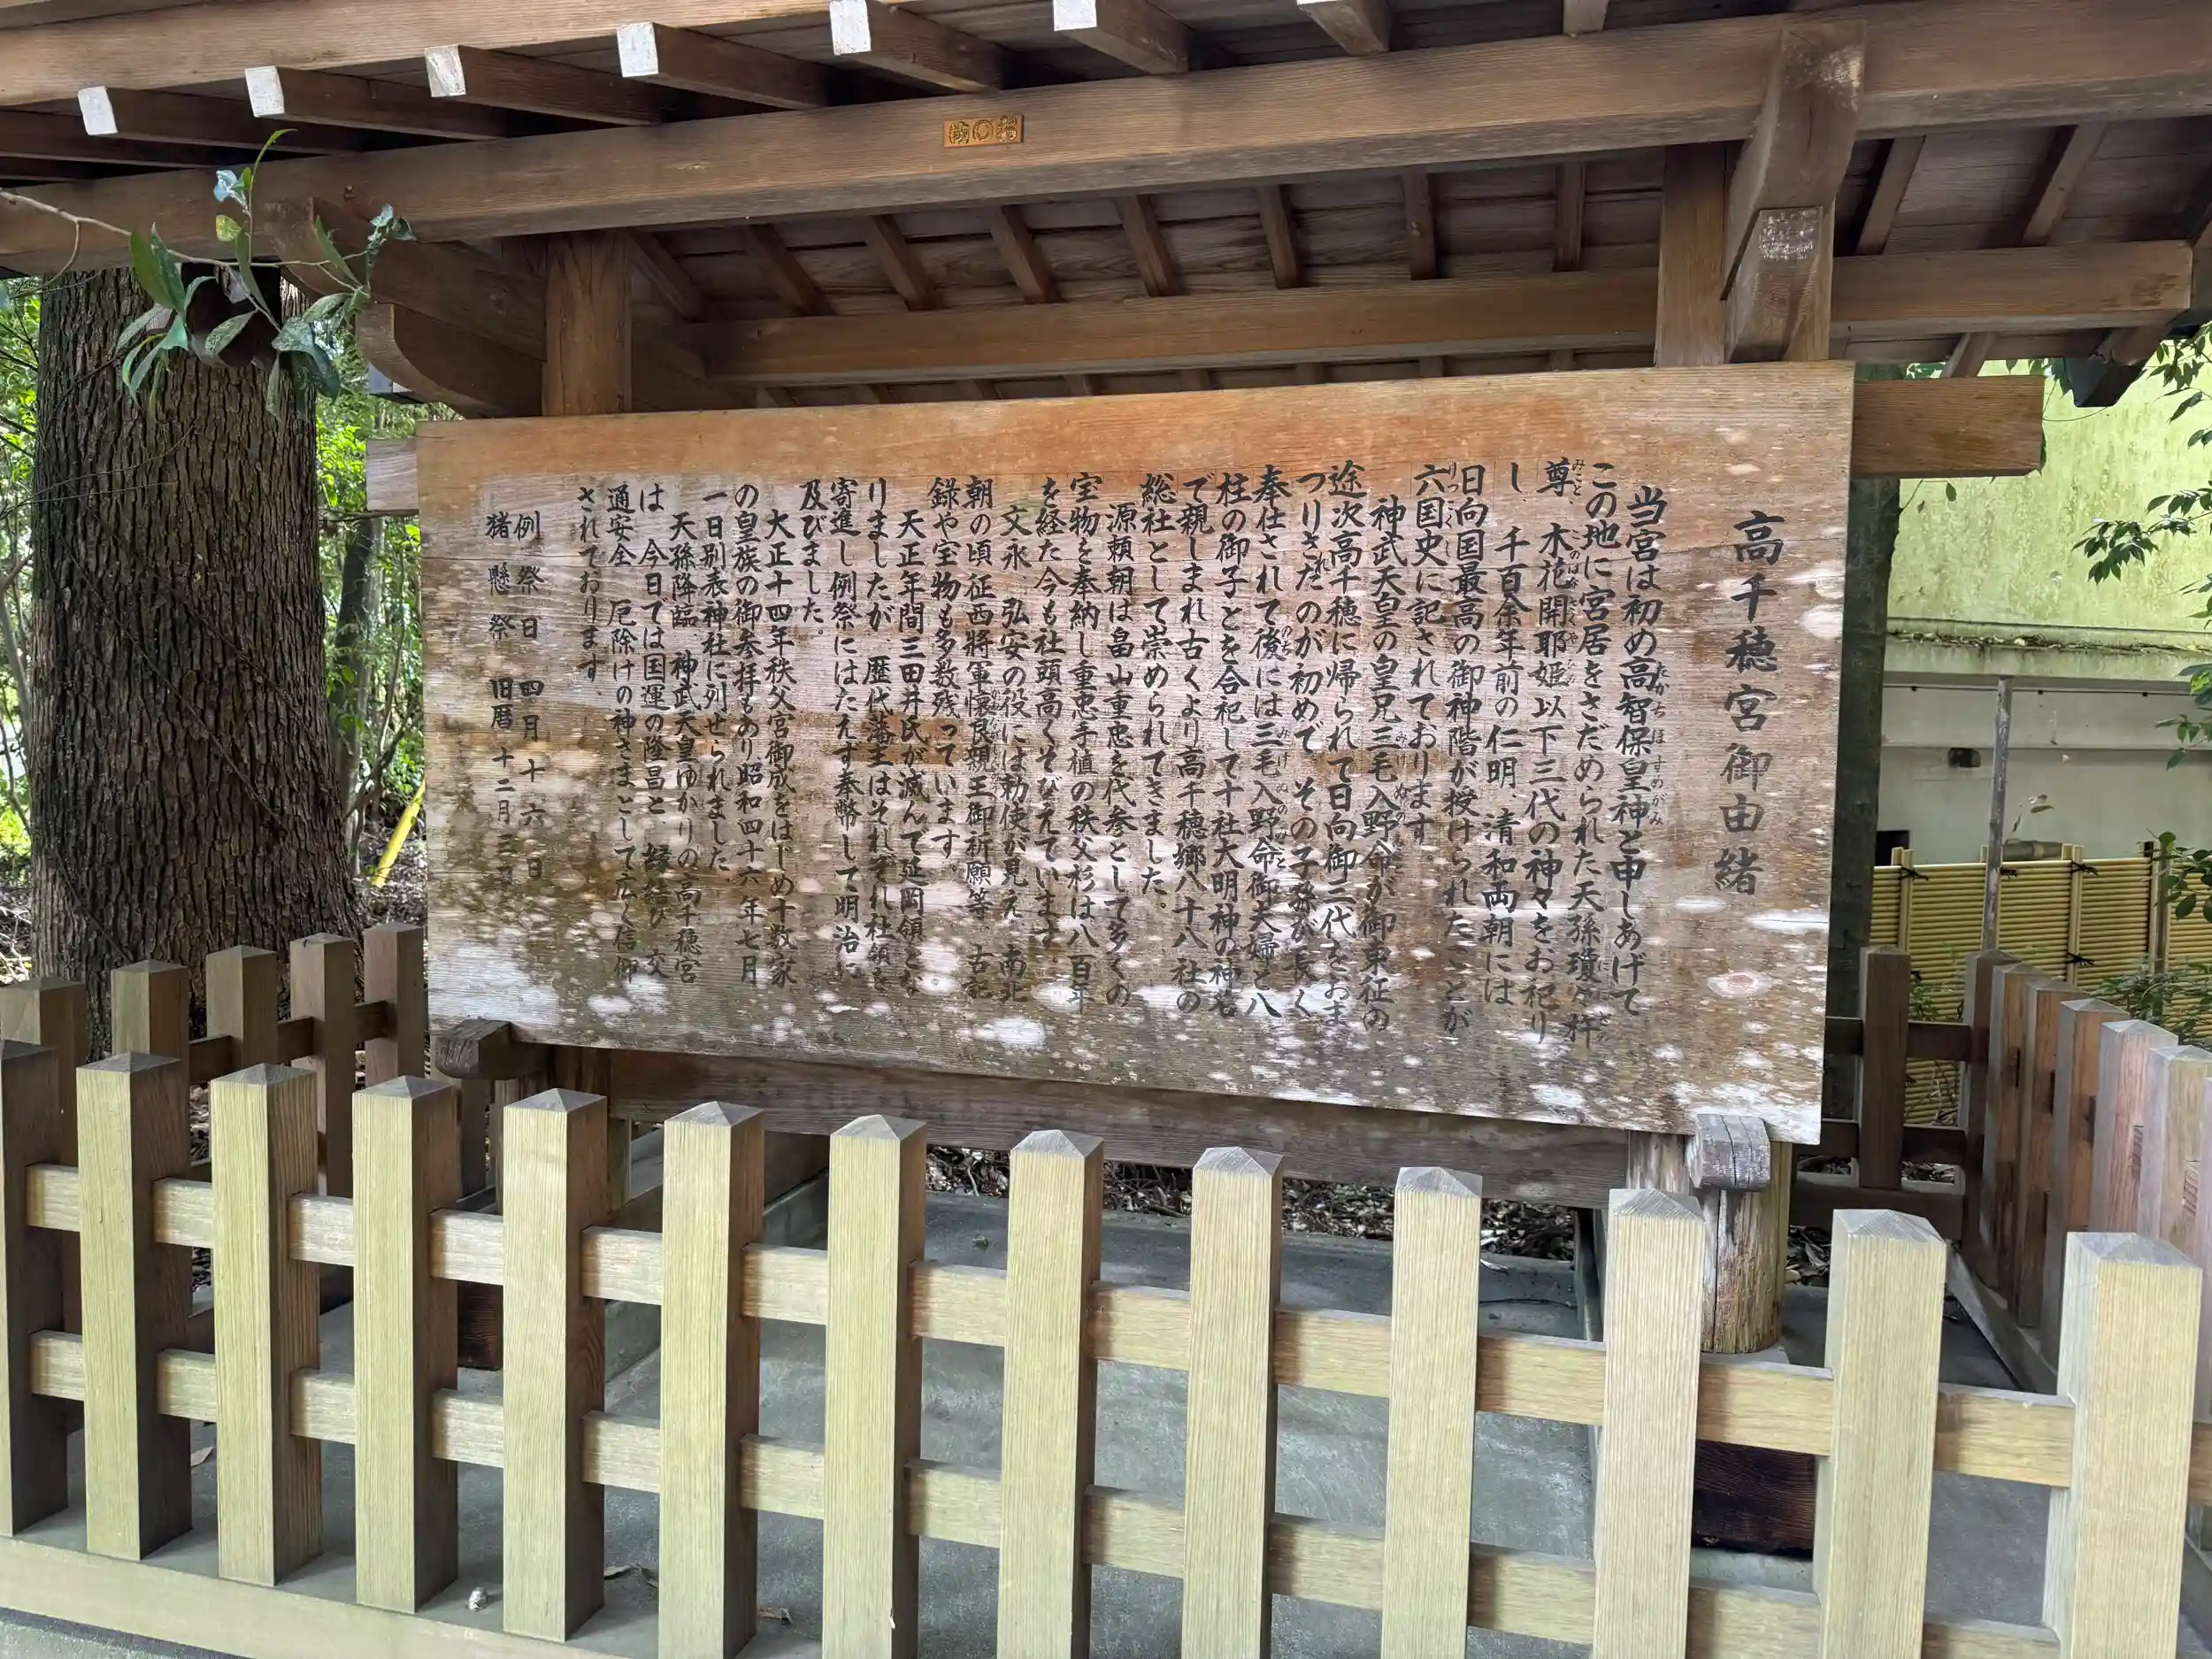 高千穂宮御由緒
当宮は初め高智保皇神と申しあげて
この地に宮居をさだめられた天孫瓊々杵
尊 木花開耶姫以下三代の神々をお祀り
し 千百余年前の仁明、清和両朝には、
日向国最高の御神階が授けられたことが
六国史に記されております。
神武天皇の皇兄三毛入野命が御東征の
途次高千穂に帰られて日向御三代をおま
つりされたのが初めで その子孫が長く
奉仕されて後には三毛入野命御夫婦と八
柱の御子とを合祀して十社大明神の神名
で親しまれ古くより高千穂郷八十八社の
総社として崇められてきました。
源頼朝は畠山重忠を代参として多くの
宝物を奉納し重忠手植の秩父杉は八百年
を経た今も社頭高くそびえています。
文永、弘安の役には勅使が見え、南北
朝の頃征西将軍懐良親王御祈願等、古記
録や宝物も多数残っています。
天正年間三田井氏が滅んで延岡領とな
りましたが 歴代藩主はそれぞれ社領を
寄進し例祭にはたえず奉幣して明治に
及びました。
大正十四年秩父宮御成をはじめ十数家
の皇族の御参拝もあり昭和四十六年七月
一日別表神社に列せられました
天孫降臨、神武天皇ゆかりの高千穂宮
は 今日では国運の隆昌と 縁結び 交
通安全 厄除けの神さまとして広く信仰
されております。
例祭日 四月十六日
猪懸祭 旧暦十二月三日